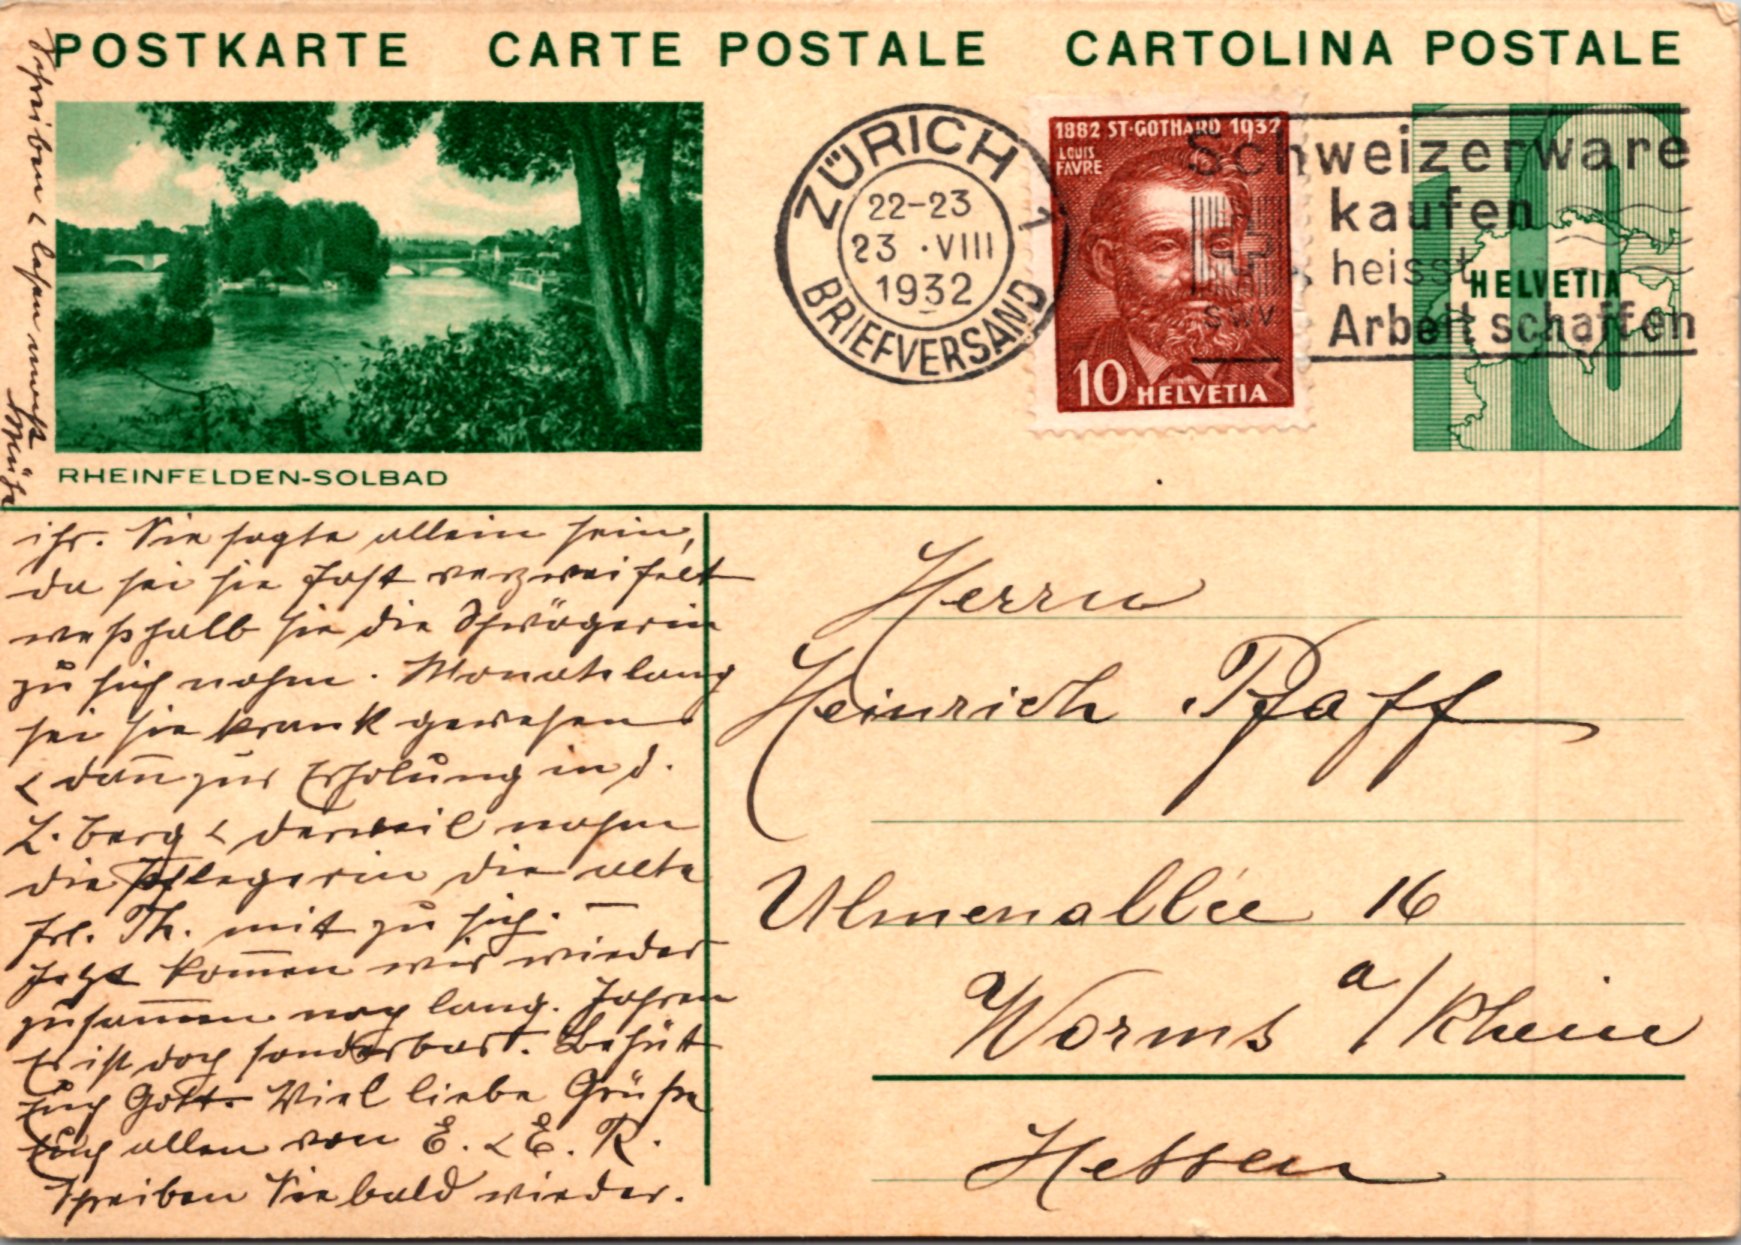 POSTKARTE CARTE POSTALE CARTOLINA POSTALE
RHEINFELDEN-SOLBAD
ZÜRICH 1
22-23
23 ·VIII
1932
BRIEFVERSAND
1882 ST·GOTHARD 1932
LOUIS
FAVRE
10 HELVETIA
Schweizerware
kaufen
heisst
Arbeit schaffen
SWV
10
HELVETIA
Schreiben & lesen macht
Mühe
ihr. Sie sagte allein sein,
da sei sie fast verzweifelt
weßhalb sie die Schwägerin
zu sich nahm. Monatelang
sei sie krank gewesen
& dan̄ zur Erholung in d.
Z. berg & derweil nahm
die Pflegerin die alte
Frl. Th. mit zu sich. –
Jetzt kom̄en wir wieder
zusam̄en nach lang. Jahren
Es ist doch sonderbar. Behüt
Euch Gott. Viel liebe Grüße
Euch allen von E. & E. R.
Schreiben Sie bald wieder.
Herrn
Heinrich Pfaff
Ulmenallée 16
Worms a/Rhein
Hessen